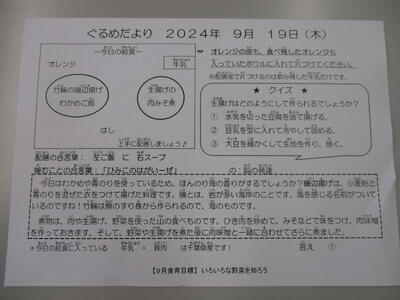 ぐるめだより 2024年 9月 19日(木)
~今日の給食~
オレンジ
牛乳
竹輪の磯辺揚げ
わかめご飯
生揚げの
肉みそ煮
はし
上手に配膳しましょう♪
オレンジの皮も、食べ残したオレンジも
入っていたボウルに入れて片づけてください。
※配膳室で片づけるのは飲み残した牛乳だけです。
★ クイズ ★
生揚げはどのようにして作られるでしょうか?
① 水気を切った豆腐を油で揚げる。
② 豆乳を型に入れて冷やして固める。
③ 大豆を細かくして生地を作り、焼く。
配膳の合言葉: 左ご飯 に 右スープ
噛むことの合言葉:「ひみこのはがいーぜ」 の:脳の発達
今日はわかめや青のりを使っているため、ほんのり海の香りがするでしょうか?磯辺揚げは、小麦粉と
青のりを混ぜた衣をつけて揚げた料理です。磯とは、岩が多い海岸のことです。海を感じる名前がついて
いるのですね!竹輪は魚のすり身から作られるので、海のものです。
煮物は、肉や生揚げ、野菜を使った山の食べものです。ひき肉を炒めて、みそなどで味をつけ、肉味噌
を作っておきます。そして、生揚げや野菜を煮た後に肉味噌と一緒に合わせてさらに煮ました。
*今日の給食に入っている 牛乳・豚肉 は千葉県産です! 答え ①
【9月食育目標】いろいろな野菜を知ろう